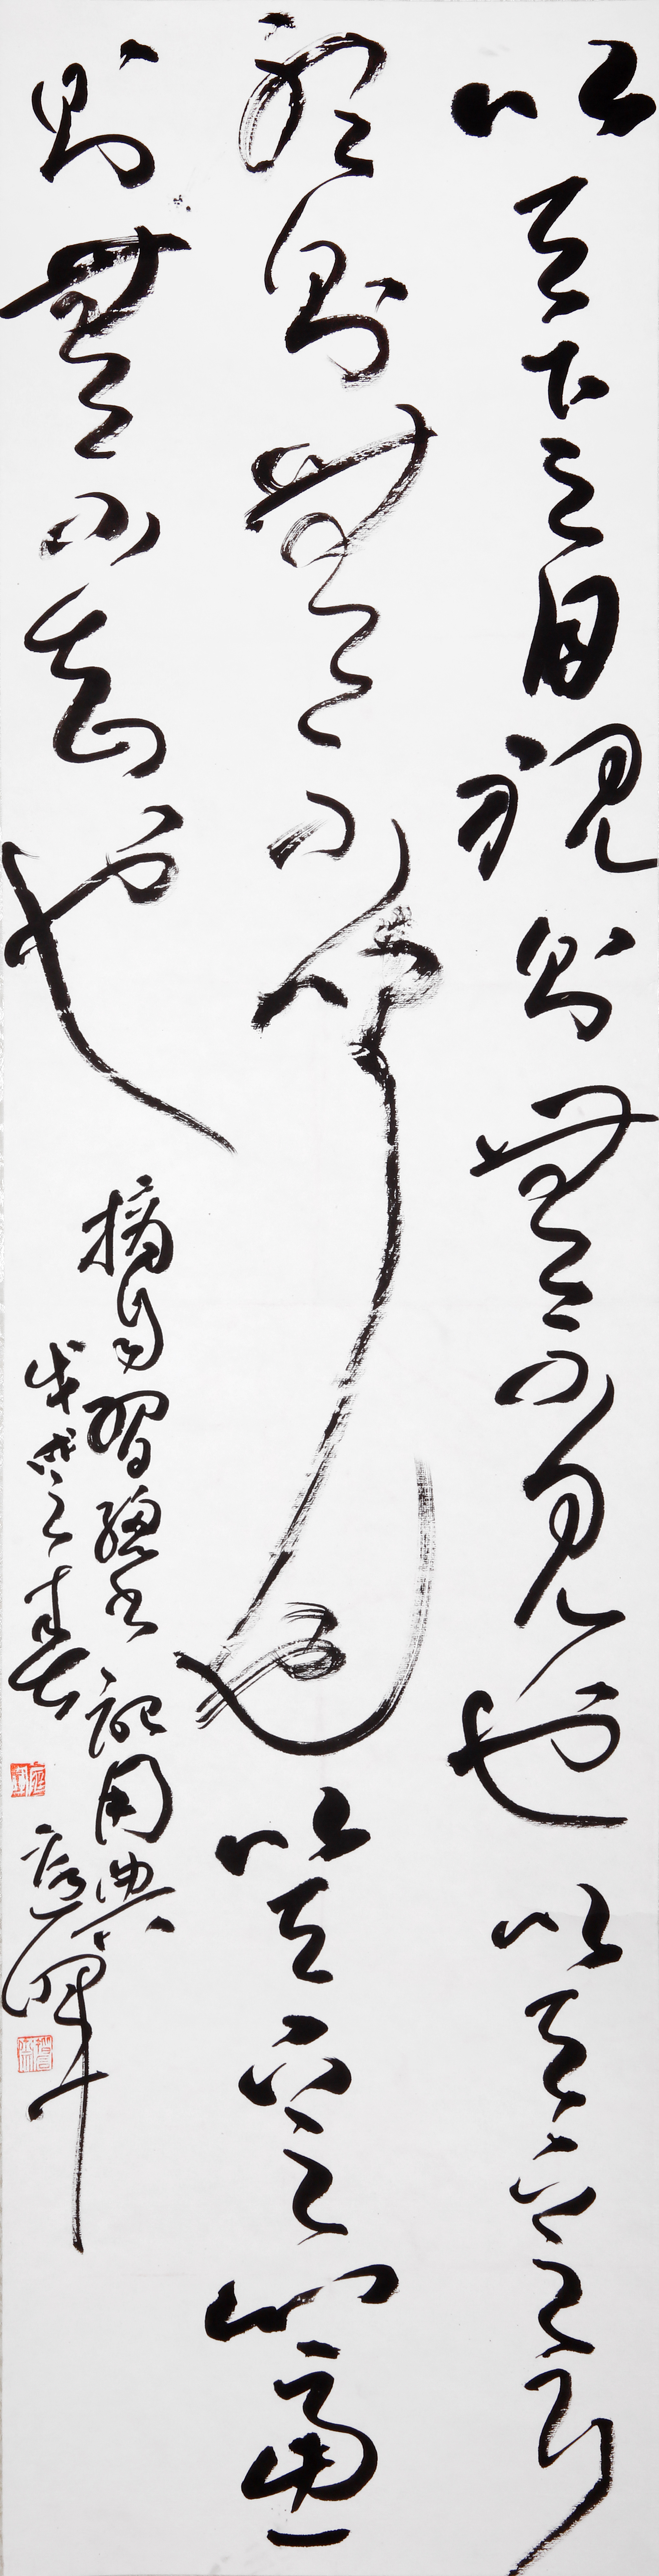 以天下之目視則無不見也以天下之耳
聽則無不聞也以天下之心慮
則無不知也
摘自習總書記用典
戊戌之春